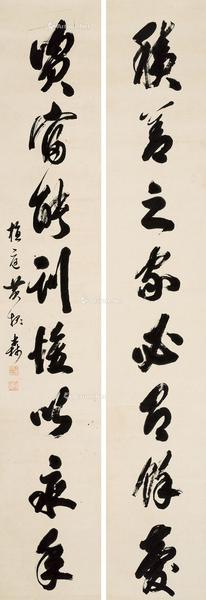 積善之家必有餘慶
資富能訓惟以永年
植庭黃彬森